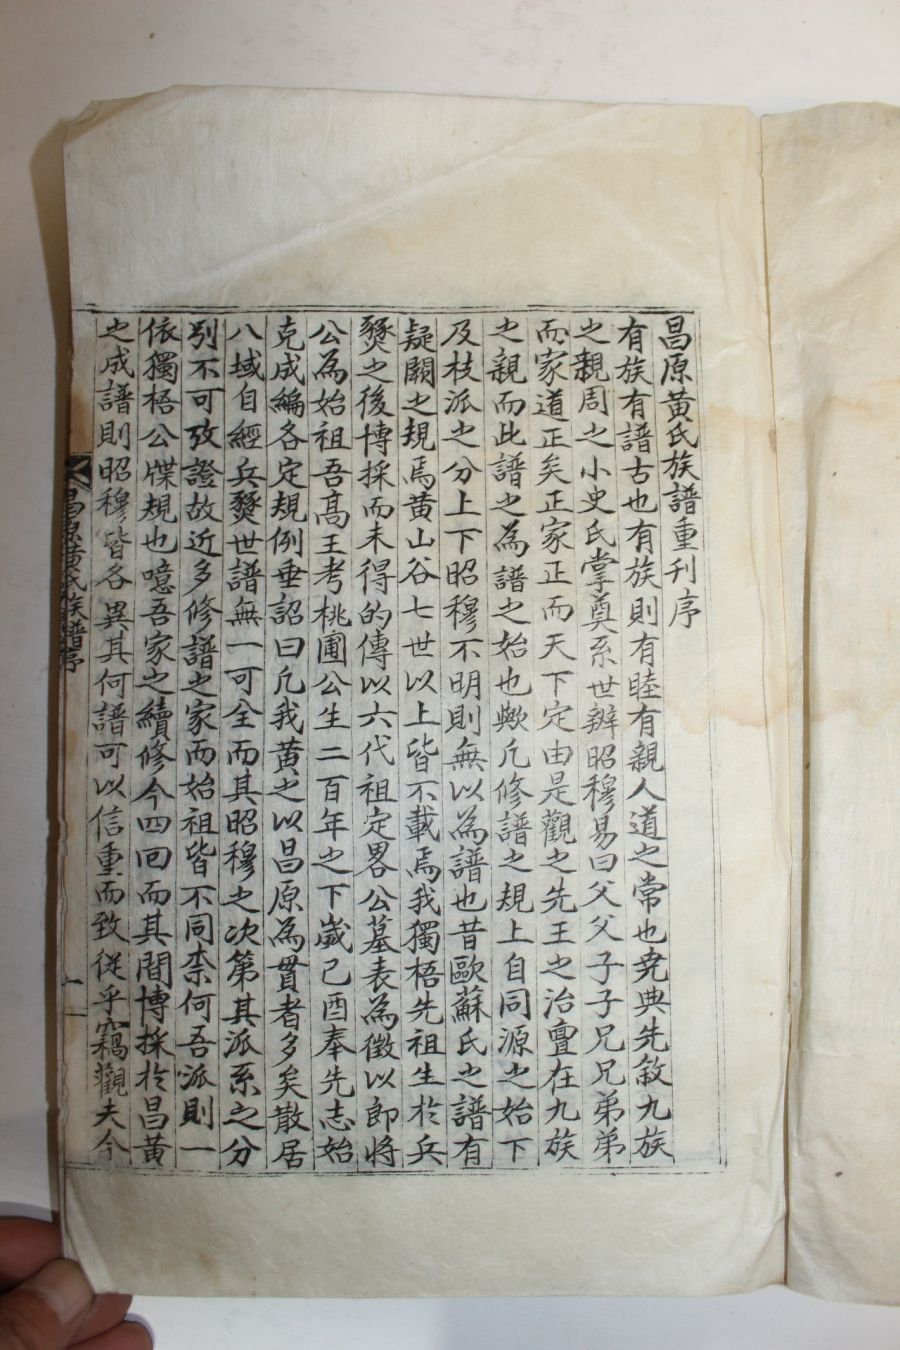 昌原黄氏族譜重刊序
有族有譜古也有族則有睦有親人道之常也堯典先敘九族
之親周之小史氏掌奠系世辨昭穆易曰父父子子兄兄弟弟
而家道正矣正家正而天下定由是觀之先王之治亶在九族
之親而此譜之為譜之始也歟凡修譜之規上自同源之始下
及枝派之分上下昭穆不明則無以為譜也昔歐蘇氏之譜有
疑闕之規焉黄山谷七世以上皆不載焉我獨梧先祖生於兵
燹之後博採而未得的傳以六代祖定畧公墓表為徵以郎將
公為始祖吾髙王考桃圃公生二百年之下歲己酉奉先志始
克成編各定規例垂詔曰凡我黄之以昌原為貫者多矣散居
八域自經兵燹世譜無一可全而其昭穆之次第其派系之分
别不可攷證故近多修譜之家而始祖皆不同柰何吾派則一
依獨梧公牒規也噫吾家之續修今四回而其間博採於昌黄
之成譜則昭穆皆各異其何譜可以信重而致從乎竊觀夫今
昌原黄氏族譜序
一